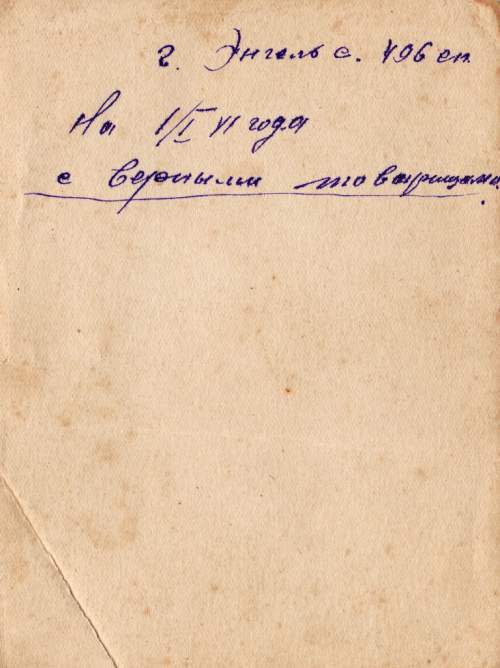 г. Энгельс. 496 сп.
На 1/I 41 года
с верными товарищами.